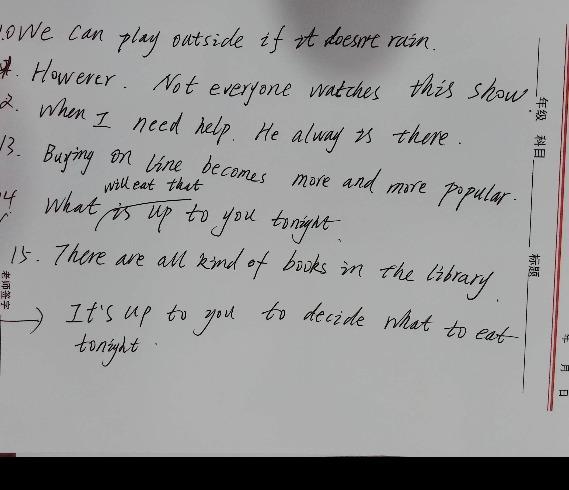 10 We can play outside if it doesn't rain.
1. However. Not everyone watches this show.
2. When I need help. He alway is there.
13. Buying on line becomes more and more popular.
will eat that
14 What is up to you tonight.
15. There are all kind of books in the library.
It's up to you to decide what to eat
tonight.
年级 科目
标题
老师签字
年 月 日